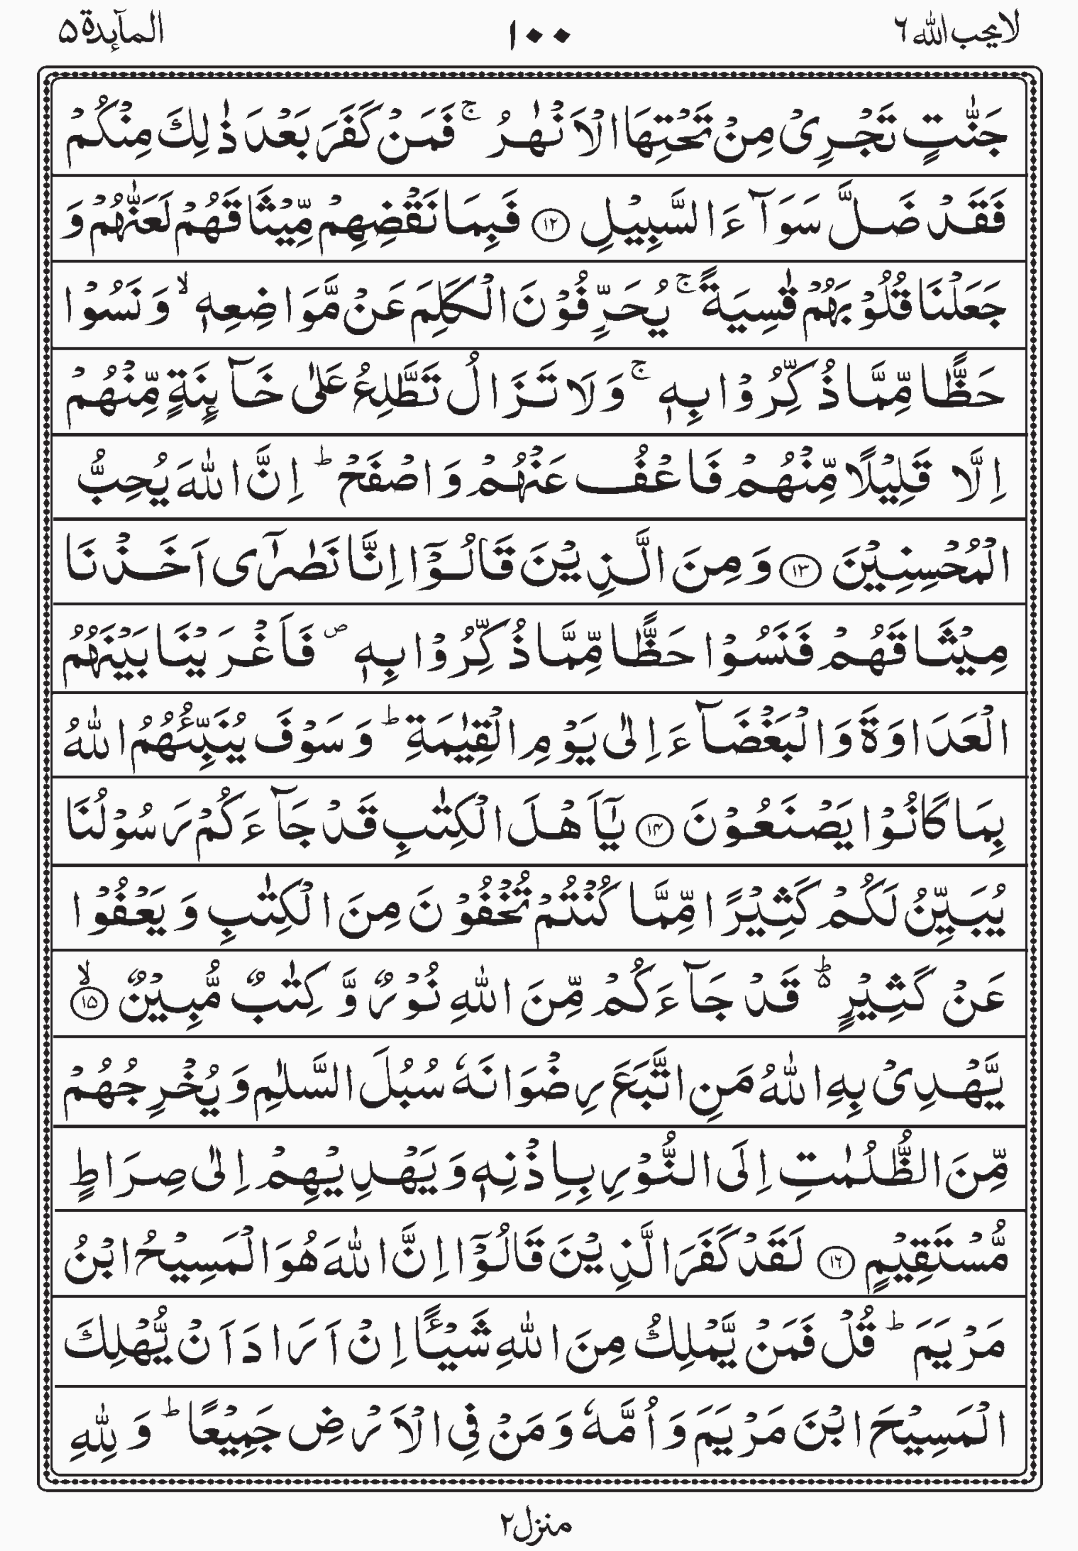 لا يحب الله ٦ ١٠٠ المآىِٕدة ۵
جَنّٰتٍ تَجْرِیْ مِنْ تَحْتِهَا الْاَنْهٰرُ ۚ فَمَنْ كَفَرَ بَعْدَ ذٰلِكَ مِنْكُمْ
فَقَدْ ضَلَّ سَوَآءَ السَّبِیْلِ ۝۱۲ فَبِمَا نَقْضِهِمْ مِّیْثَاقَهُمْ لَعَنّٰهُمْ وَ
جَعَلْنَا قُلُوْبَهُمْ قٰسِیَةً ۚ یُحَرِّفُوْنَ الْكَلِمَ عَنْ مَّوَاضِعِهٖ ۙ وَ نَسُوْا
حَظًّا مِّمَّا ذُكِّرُوْا بِهٖ ۚ وَلَا تَزَالُ تَطَّلِعُ عَلٰی خَآىِٕنَةٍ مِّنْهُمْ
اِلَّا قَلِیْلًا مِّنْهُمْ فَاعْفُ عَنْهُمْ وَاصْفَحْ ؕ اِنَّ اللّٰهَ یُحِبُّ
الْمُحْسِنِیْنَ ۝۱۳ وَمِنَ الَّذِیْنَ قَالُوْۤا اِنَّا نَصٰرٰۤی اَخَذْنَا
مِیْثَاقَهُمْ فَنَسُوْا حَظًّا مِّمَّا ذُكِّرُوْا بِهٖ ۪ فَاَغْرَیْنَا بَیْنَهُمُ
الْعَدَاوَةَ وَالْبَغْضَآءَ اِلٰی یَوْمِ الْقِیٰمَةِ ؕ وَسَوْفَ یُنَبِّئُهُمُ اللّٰهُ
بِمَا كَانُوْا یَصْنَعُوْنَ ۝۱۴ یٰۤاَهْلَ الْكِتٰبِ قَدْ جَآءَكُمْ رَسُوْلُنَا
یُبَیِّنُ لَكُمْ كَثِیْرًا مِّمَّا كُنْتُمْ تُخْفُوْنَ مِنَ الْكِتٰبِ وَیَعْفُوْا
عَنْ كَثِیْرٍ ؕ۬ قَدْ جَآءَكُمْ مِّنَ اللّٰهِ نُوْرٌ وَّ كِتٰبٌ مُّبِیْنٌ ۝۱۵ۙ
یَّهْدِیْ بِهِ اللّٰهُ مَنِ اتَّبَعَ رِضْوَانَهٗ سُبُلَ السَّلٰمِ وَیُخْرِجُهُمْ
مِّنَ الظُّلُمٰتِ اِلَی النُّوْرِ بِاِذْنِهٖ وَیَهْدِیْهِمْ اِلٰی صِرَاطٍ
مُّسْتَقِیْمٍ ۝۱۶ لَقَدْ كَفَرَ الَّذِیْنَ قَالُوْۤا اِنَّ اللّٰهَ هُوَ الْمَسِیْحُ ابْنُ
مَرْیَمَ ؕ قُلْ فَمَنْ یَّمْلِكُ مِنَ اللّٰهِ شَیْـًٔا اِنْ اَرَادَ اَنْ یُّهْلِكَ
الْمَسِیْحَ ابْنَ مَرْیَمَ وَاُمَّهٗ وَمَنْ فِی الْاَرْضِ جَمِیْعًا ؕ وَ لِلّٰهِ
منزل ۲